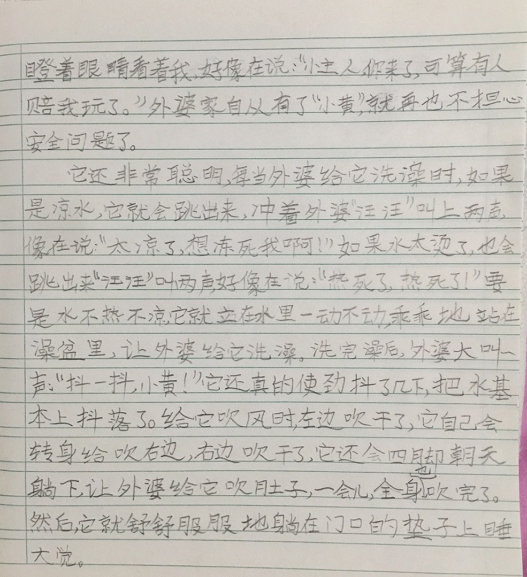 瞪着眼睛看着我,好像在说:"小主人你来了,可算有人
赔我玩了。"外婆家自从有了"小黄",就再也不担心
安全问题了。
它还非常聪明,每当外婆给它洗澡时,如果
是凉水,它就会跳出来,冲着外婆"汪汪"叫上两声,
像在说:"太凉了,想冻死我啊!"如果水太烫了,也会
跳出来"汪汪"叫两声,好像在说:"热死了,热死了!"要
是水不热不凉,它就立在水里一动不动,乖乖地站在
澡盆里,让外婆给它洗澡。洗完澡后,外婆大叫一
声:"抖一抖,小黄!"它还真的使劲抖了几下,把水基
本上抖落了。给它吹风时,左边吹干了,它自己会
转身给吹右边,右边吹干了,它还会四脚朝天
躺下,让外婆给它吹肚子,一会儿,全身也吹完了。
然后,它就舒舒服服地躺在门口的垫子上睡
大觉。